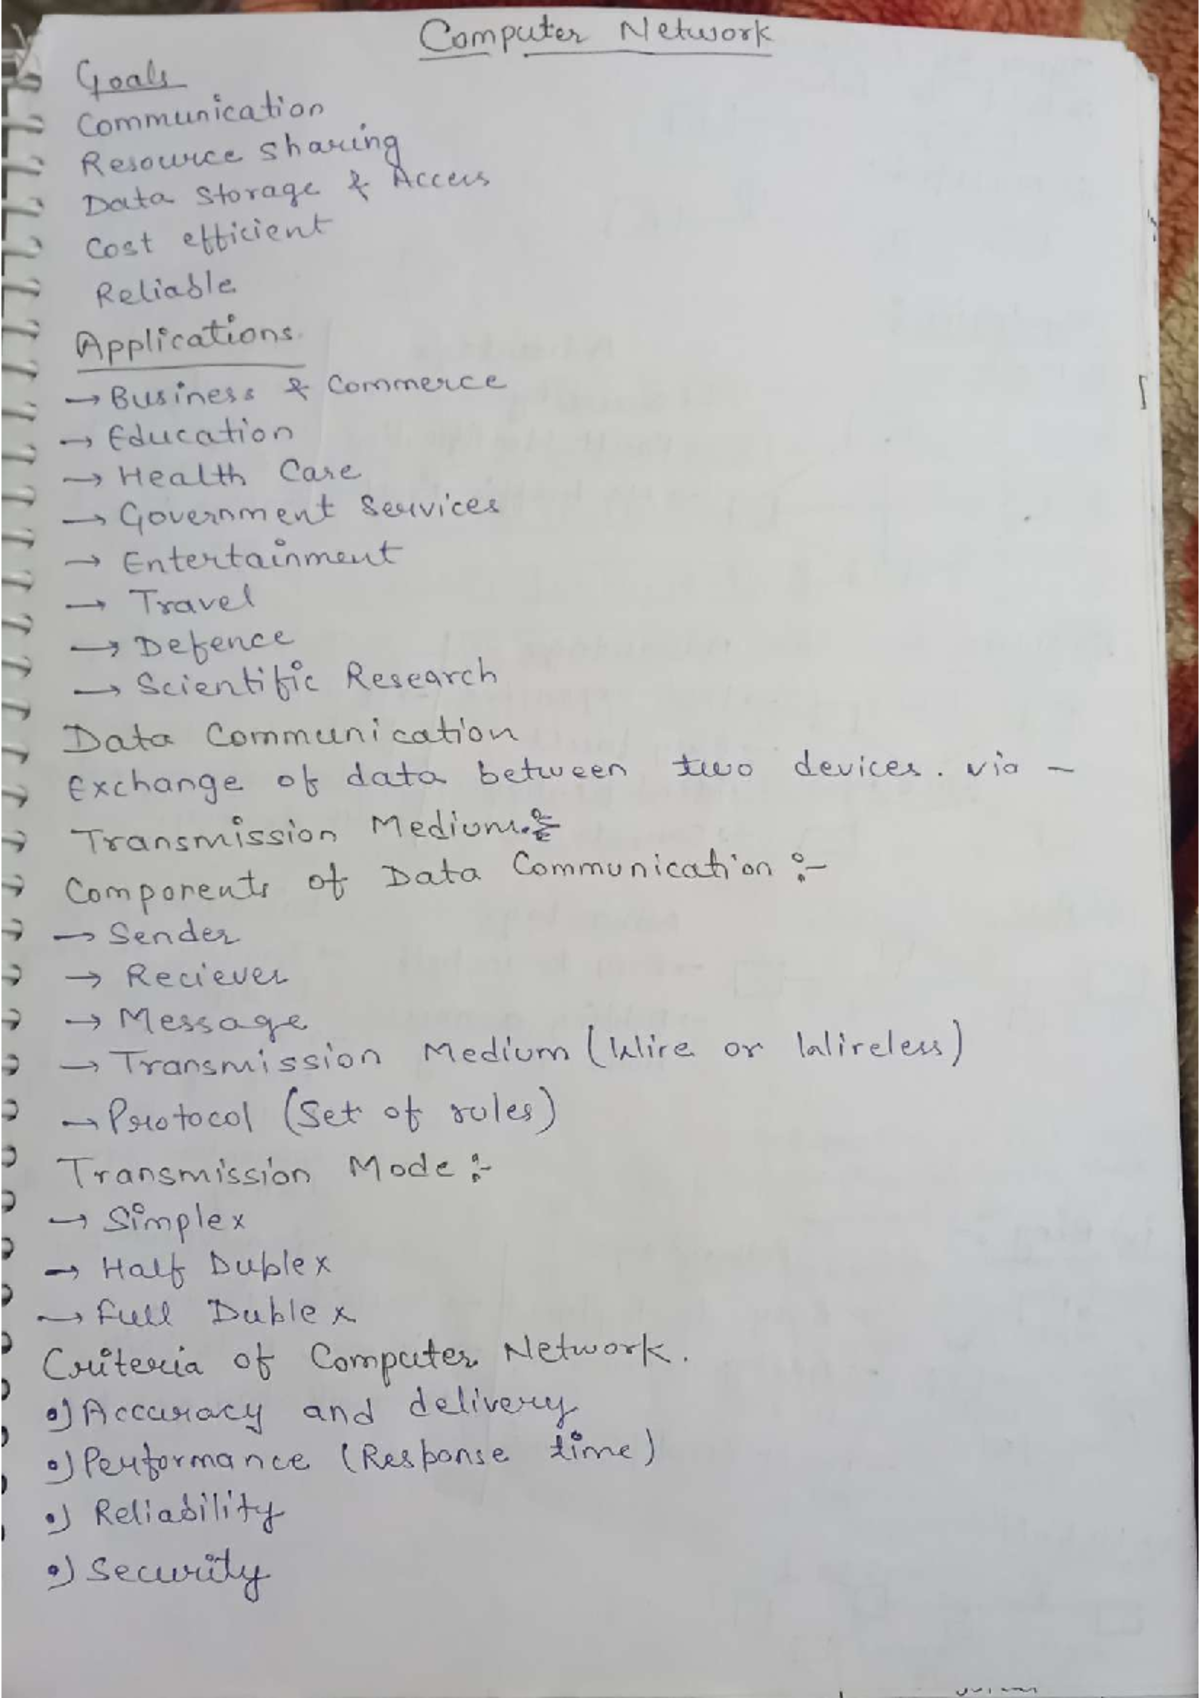 Computer Network
Goals
Communication
Resource sharing
Data Storage & Access
Cost efficient
Reliable
Applications
→ Business & Commerce
→ Education
→ Health Care
→ Government Services
→ Entertainment
→ Travel
→ Defence
→ Scientific Research
Data Communication
Exchange of data between two devices. via –
Transmission Medium.
Components of Data Communication :-
→ Sender
→ Reciever
→ Message
→ Transmission Medium (Wire or Wireless)
→ Protocol (Set of rules)
Transmission Mode :-
→ Simplex
→ Half Duplex
→ Full Duplex
Criteria of Computer Network.
•) Accuracy and delivery
•) Performance (Response time)
•) Reliability
•) Security